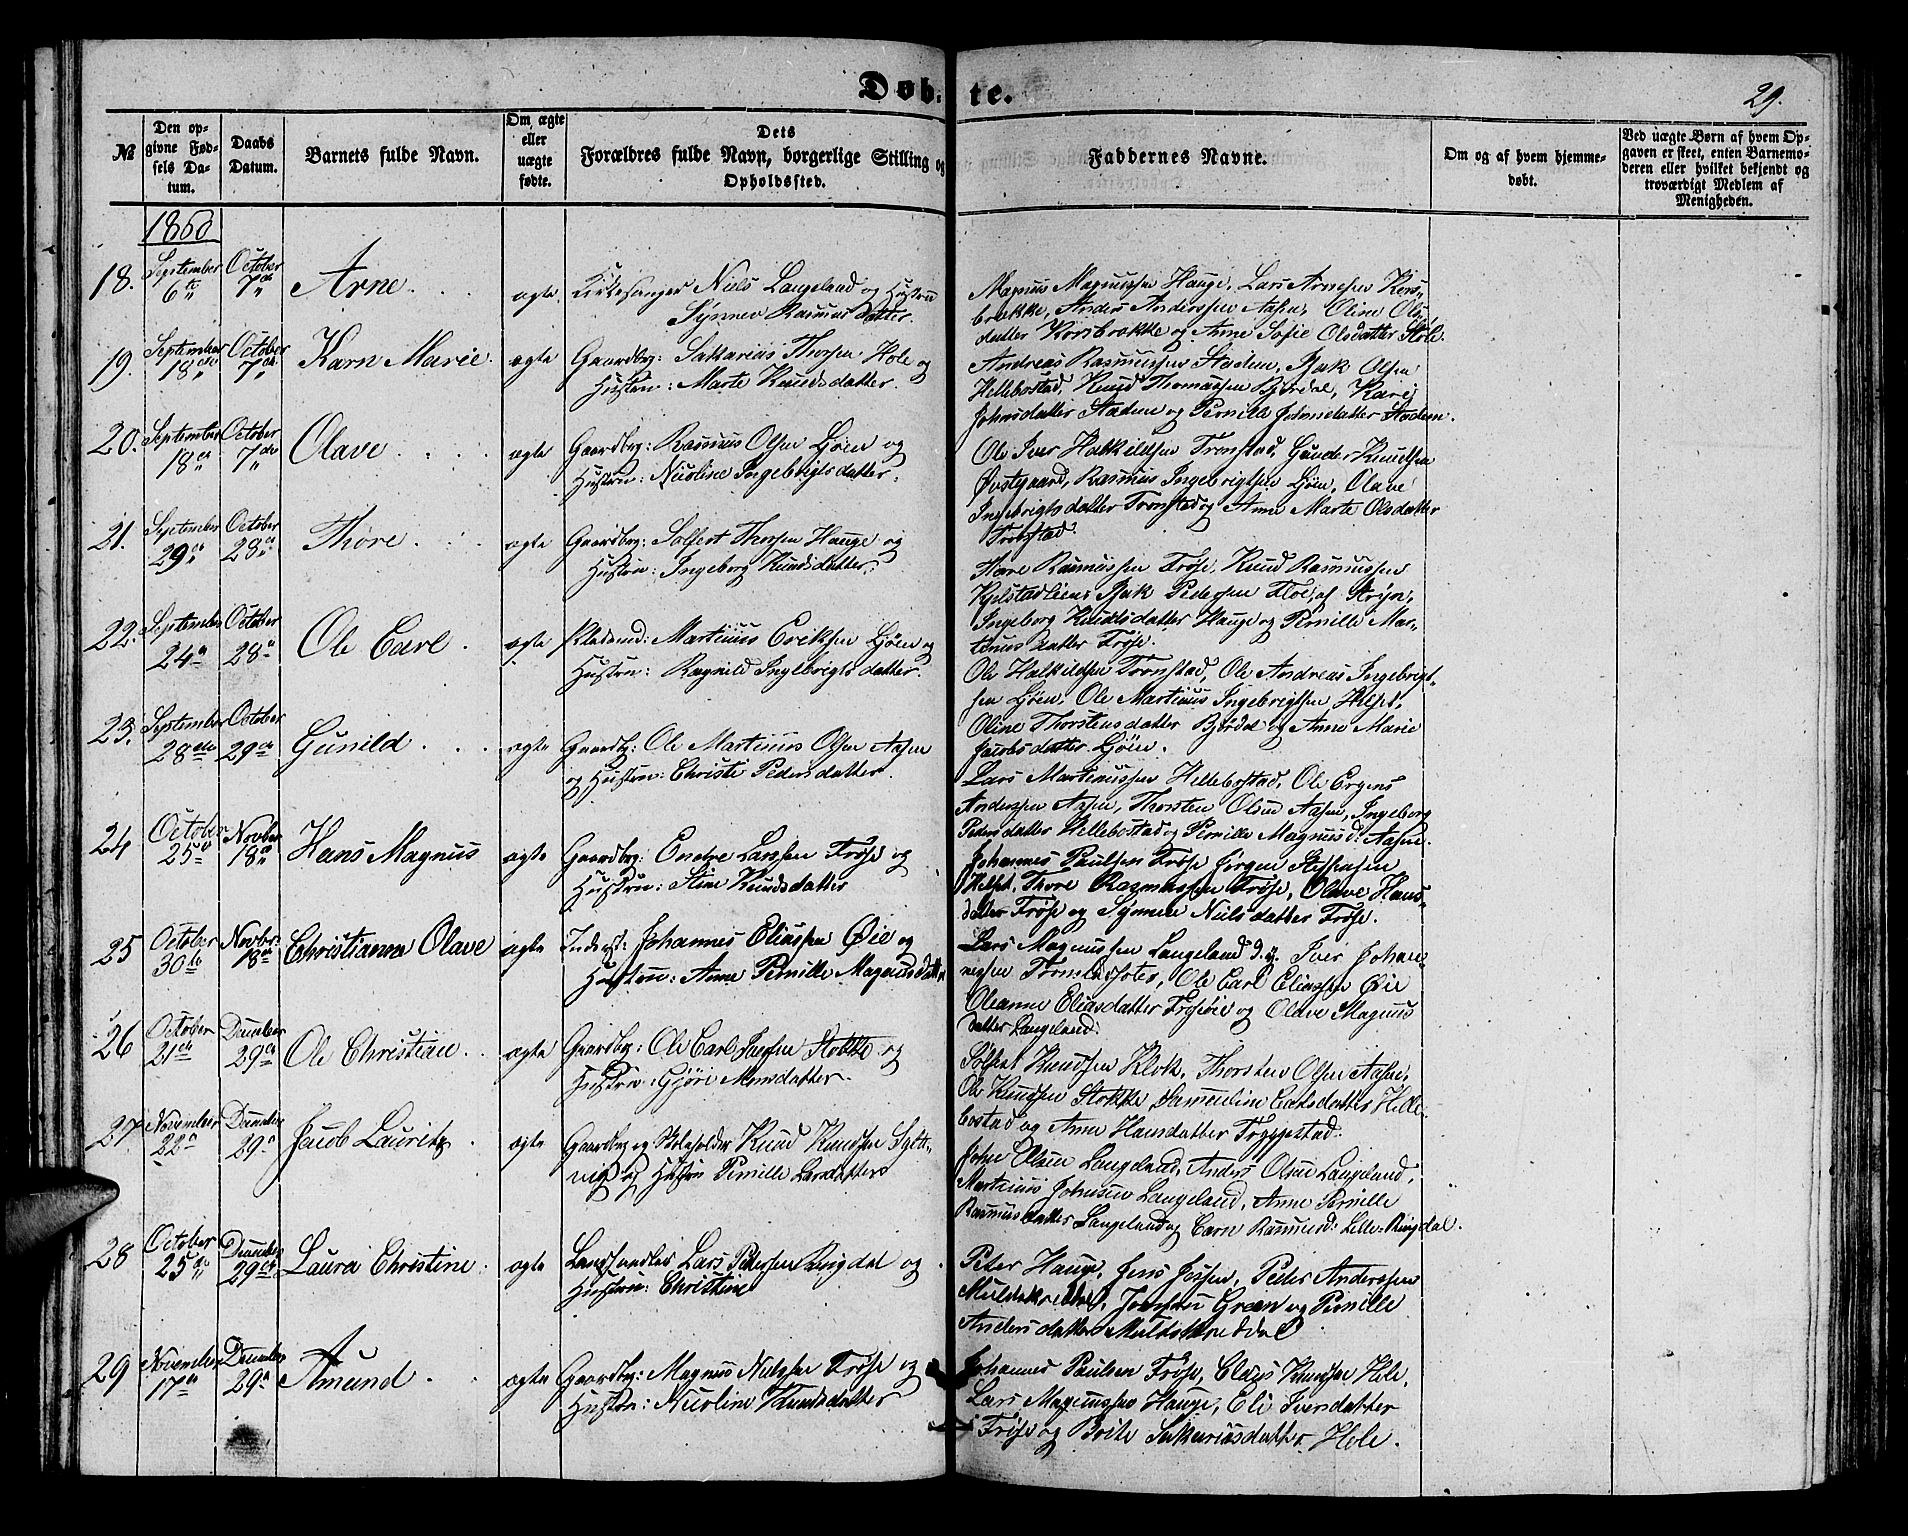 Døb-te.
29.
№
Den opgivne Fødsels Datum.
Daabs Datum.
Barnets fulde Navn.
Om ægte eller uægte fødte.
Dets Forældres fulde Navn, borgerlige Stilling og Opholdssted.
Faddernes Navne.
Om og af hvem hjemmedøbt.
Ved uægte Børn af hvem Opgaven er skeet, enten Barnemoderen eller hvilket bekjendt og troværdigt Medlem af Menigheden.
1860
18. September 6te October 7de Arne ægte Kirkesanger Niels Langeland og Hustru
Synnev Rasmusdatter.
Magnus Magnussen Hauge, Lars Arnesen Kors-
brække, Anders Anderssen Aasen, Oline Ols-
datter Korsbrække og Anne Sofie Olsdatter Hole.
19. September 18de October 7de Karn Marie ægte Gaardbr: Sakarias Thorsen Hole og
Hustru: Marte Knudsdatter.
Andreas Rasmussen Stadem, Isak Olsen
Hellebostad, Knud Thomassen Bjørdal, Kari
Johnsdatter Stadem og Pernille Johnsdatter Stadem.
20. September 18de October 7de Olave ægte Gaardbr: Rasmus Olsen Ljøen og
Hustru: Nicoline Ingebrigtsdatter.
Ole Iver Halkildsen Tronstad, Gunder Knudsen
Øvstgaard, Rasmus Ingebrigtsen Ljøen, Olave
Ingebrigtsdatter Tronstad og Anne Marte Olsdatter
Tronstad.
21. September 29de October 28de Thore ægte Gaardbr: Solfest Thorsen Hauge og
Hustru: Ingeborg Knudsdatter.
Thore Rasmussen Frøse, Knud Rasmussen
Kjelstadlien, Isak Pedersen Floe, af Stryn,
Ingeborg Knudsdatter Hauge og Pernille Mar-
tinusdatter Frøse.
22. September 24de October 28de Ole Carl ægte Pladsmd: Martinus Eriksen Ljøen og
Hustru: Ragnild Ingebrigtsdatter.
Ole Halkildsen Tronstad, Ole Andreas Ingebrigt-
sen Ljøen, Ole Martinus Ingebrigtsen Hilset,
Oline Thorstensdatter Bjørdal og Anne Marie
Jacobsdatter Ljøen.
23. September 28de October 29de Gunild ægte Gaardbr: Ole Martinus Olsen Aasen
og Hustru: Christi Pedersdatter.
Lars Martinussen Hellebostad, Ole
Anderssen Aasen, Thorsten Olsen Aasen, Ingeborg
Pedersdatter Hellebostad og Pernille Magnusd: Aasen.
24 October 25de Novber 18de Hans Magnus ægte Gaardbr: Endre Larssen Frøse og
Hustru: Stine Knudsdatter
Johannes Paulsen Frøse, Jørgen Steffensen
Hilset, Thore Rasmussen Frøse, Olave Hans-
datter Frøse og Synneve Nielsdatter Frøse.
25 October 30te Novbr: 18de Christianna Olave ægte Inderst: Johannes Eliassen Øie og
Hustru: Anne Pernille Magnusdatter
Lars Magnussen Langeland d. y. Iver Johan-
nessen Ole Carl Eliassen Øie
Oleanne Eliasdatter og Olave Magnus
datter Langeland.
26 October 21de December 29de Ole Christian ægte Gaardbr: Ole Carl Stokke og
Hustru: Gjøri Monsdatter.
Solfest Knudsen Klok, Thorsten Olsen Aasen,
Ole Knudsen Stokke, Samueline Carlsdatter Helle-
bostad og Anne Hansdatter Tryggestad.
27 November 22de December 29de Jacob Lauritz ægte Gaardbr og Skoleholder Knud Knudsen Sylt-
og Hustru Pernille Larsdatter
John Olsen Langeland, Anders Olsen Langeland,
Martinus Johnsen Langeland, Anne Pernille
Rasmusdatter Langeland og Carn Rasmusd: Lille-Ringdal.
28 October 25de December 29de Laura Christine ægte Landhandler Lars Pettersen Ringdal og
Hustru: Christine
Peter Hauge, Jens Jossen, Peder Anderssen
Muldskreddal, Green og Pernille
Andersdatter Muldskreddal
29 November 17de December 29de Amund ægte Gaardbr: Magnus Nielssen Frøse og
Hustru: Nicoline Knudsdatter
Johannes Paulsen Frøse, Claus Knudsen Hole,
Lars Magnussen Hauge, Eli Iversdatter
Frøse og Brite Sakariasdatter Hole.